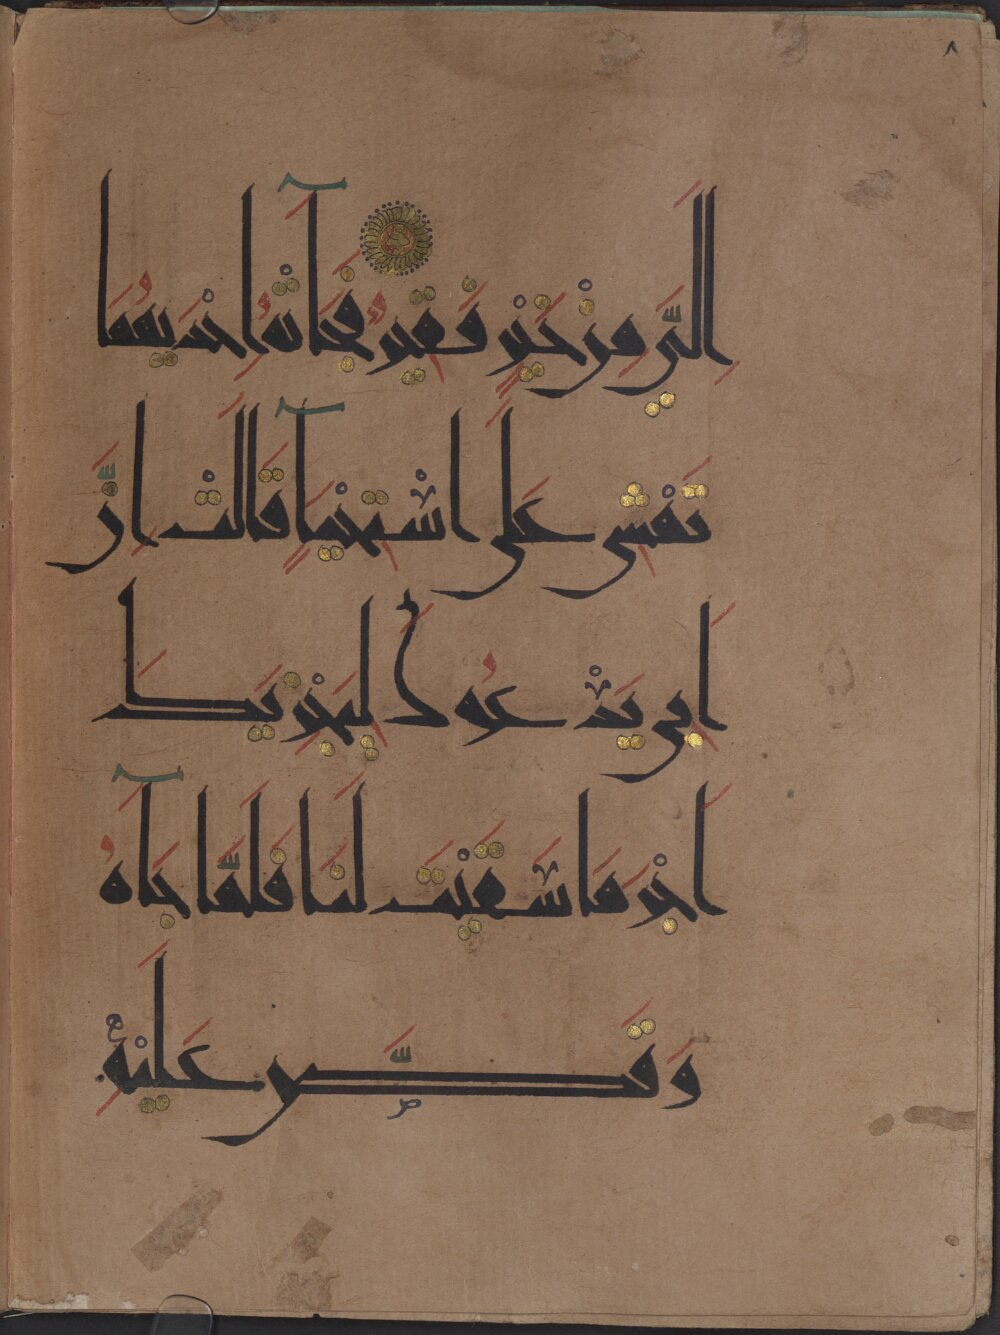 ٨
اِلَيَّ مِنْ خَيْرٍ فَقِيرٌ فَجَآتْهُ اِحْدَيهُمَا
تَمْشِى عَلَى اسْتِحْيَآءٍ قَالَتْ اِنَّ
اَبِى يَدْعُوكَ لِيَجْزِيَكَ
اَجْرَ مَا سَقَيْتَ لَنَا فَلَمَّا جَآهُ
وَقَصَّ عَلَيْهِ